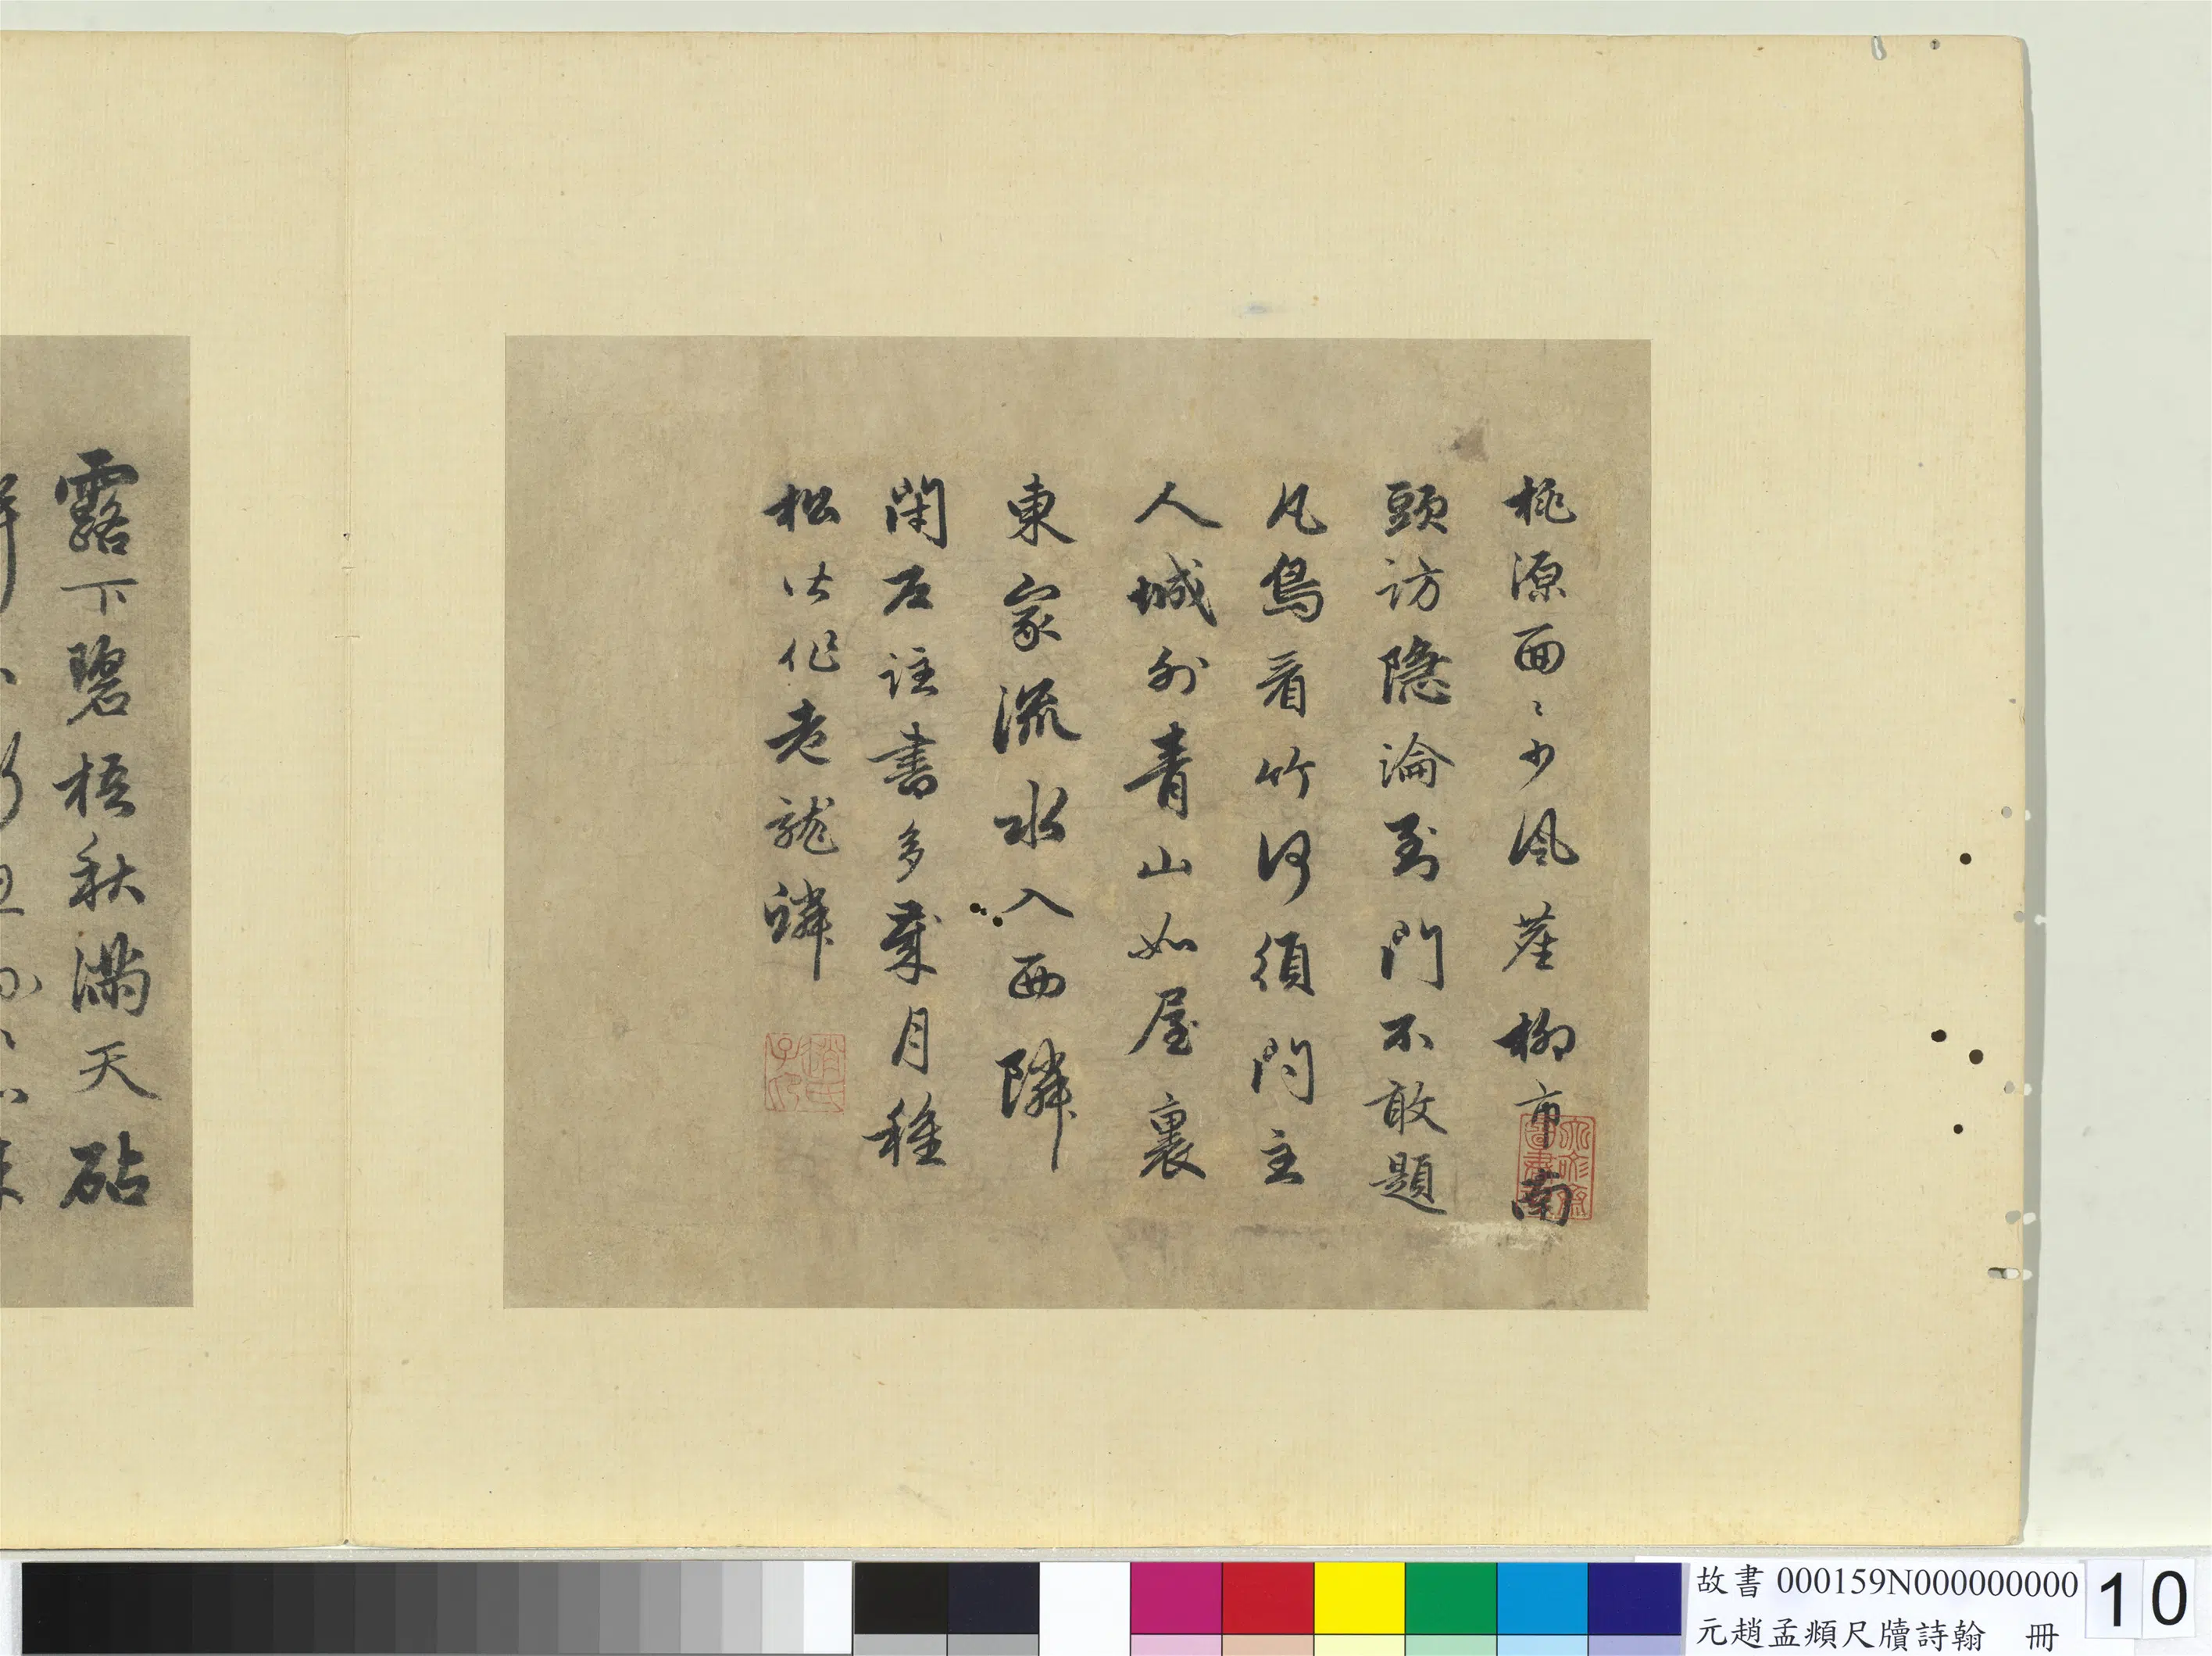 桃源面〻少風塵柳市南
頭訪隱淪到門不敢題
凡鳥看竹何須問主
人城外青山如屋裏
東家流水入西隣
閉戶註書多歲月種
松皆作老龍鱗
趙氏子昂
露下碧梧秋滿天砧
故書 000159N000000000
元趙孟頫尺牘詩翰 冊
10